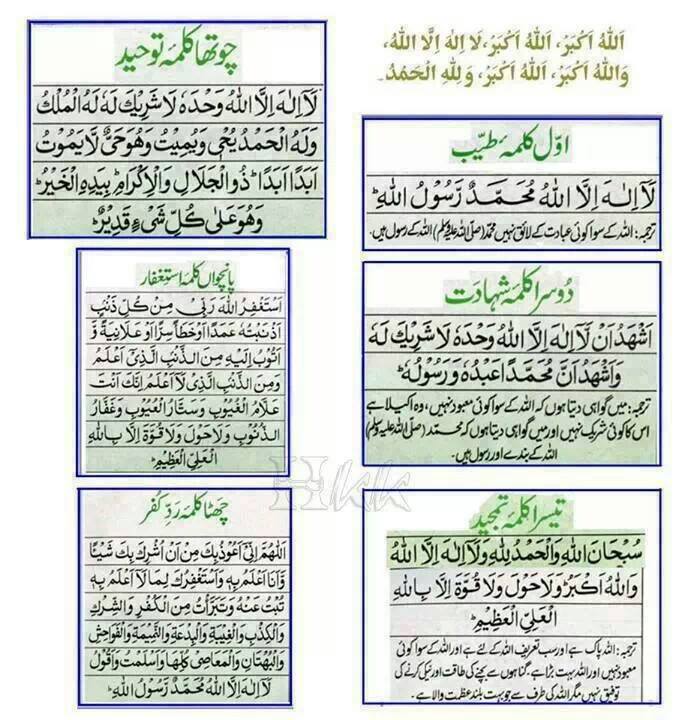 اَللّٰهُ اَكْبَرُ، اَللّٰهُ اَكْبَرُ، لَا اِلٰهَ اِلَّا اللّٰهُ،
وَاللّٰهُ اَكْبَرُ، اَللّٰهُ اَكْبَرُ، وَ لِلّٰهِ الْحَمْدُ۔
اوّل کلمۂ طیّب
لَآ اِلٰهَ اِلَّا اللّٰهُ مُحَمَّدٌ رَّسُوْلُ اللّٰهِ ؕ
ترجمہ: اللہ کے سوا کوئی عبادت کے لائق نہیں محمّد (صلی اللہ علیہ وسلم) اللہ کے رسول ہیں.
دُوسرا کلمۂ شہادت
اَشْهَدُ اَنْ لَّآ اِلٰهَ اِلَّا اللّٰهُ وَحْدَهٗ لَا شَرِيْكَ لَهٗ
وَاَشْهَدُ اَنَّ مُحَمَّدًا عَبْدُهٗ وَرَسُوْلُهٗ ؕ
ترجمہ: میں گواہی دیتا ہوں کہ اللہ کے سوا کوئی معبود نہیں، وہ اکیلا ہے
اس کا کوئی شریک نہیں اور میں گواہی دیتا ہوں کہ محمّد (صلی اللہ علیہ وسلم)
اللہ کے بندے اور رسول ہیں.
تیسرا کلمۂ تمجید
سُبْحَانَ اللّٰهِ وَالْحَمْدُ لِلّٰهِ وَلَآ اِلٰهَ اِلَّا اللّٰهُ
وَاللّٰهُ اَكْبَرُ ؕ وَلَا حَوْلَ وَلَا قُوَّةَ اِلَّا بِاللّٰهِ
الْعَلِيِّ الْعَظِيْمِ ؕ
ترجمہ: اللہ پاک ہے اور سب تعریف اللہ کے لئے ہے اور اللہ کے سوا کوئی
معبود نہیں اور اللہ بہت بڑا ہے. گناہوں سے بچنے کی طاقت اور نیکی کرنے کی
توفیق نہیں مگر اللہ کی طرف سے جو بہت بلند عظمت والا ہے.
چوتھا کلمۂ توحید
لَآ اِلٰهَ اِلَّا اللّٰهُ وَحْدَهٗ لَا شَرِيْكَ لَهٗ لَهُ الْمُلْكُ
وَلَهُ الْحَمْدُ يُحْيٖ وَيُمِيْتُ وَهُوَ حَيٌّ لَّا يَمُوْتُ
اَبَدًا اَبَدًا ؕ ذُو الْجَلَالِ وَالْاِكْرَامِ ؕ بِيَدِهِ الْخَيْرُ ؕ
وَهُوَ عَلٰى كُلِّ شَيْءٍ قَدِيْرٌ ؕ
پانچواں کلمۂ استغفار
اَسْتَغْفِرُ اللّٰهَ رَبِّيْ مِنْ كُلِّ ذَنْۢبٍ
اَذْنَبْتُهٗ عَمَدًا اَوْ خَطَأً سِرًّا اَوْ عَلَانِيَةً وَّ
اَتُوْبُ اِلَيْهِ مِنَ الذَّنْۢبِ الَّذِيْٓ اَعْلَمُ
وَمِنَ الذَّنْۢبِ الَّذِيْ لَآ اَعْلَمُ اِنَّكَ اَنْتَ
عَلَّامُ الْغُيُوْبِ وَسَتَّارُ الْعُيُوْبِ وَغَفَّارُ
الذُّنُوْبِ وَلَا حَوْلَ وَلَا قُوَّةَ اِلَّا بِاللّٰهِ
الْعَلِيِّ الْعَظِيْمِ ؕ
چھٹا کلمۂ ردِّ کفر
اَللّٰهُمَّ اِنِّيْٓ اَعُوْذُ بِكَ مِنْ اَنْ اُشْرِكَ بِكَ شَيْئًا
وَّاَنَا اَعْلَمُ بِهٖ وَاَسْتَغْفِرُكَ لِمَا لَآ اَعْلَمُ بِهٖ
تُبْتُ عَنْهُ وَتَبَرَّأْتُ مِنَ الْكُفْرِ وَالشِّرْكِ
وَالْكِذْبِ وَالْغِيْبَةِ وَالْبِدْعَةِ وَالنَّمِيْمَةِ وَالْفَوَاحِشِ
وَالْبُهْتَانِ وَالْمَعَاصِيْ كُلِّهَا وَاَسْلَمْتُ وَاَقُوْلُ
لَآ اِلٰهَ اِلَّا اللّٰهُ مُحَمَّدٌ رَّسُوْلُ اللّٰهِ ؕ
Hkk